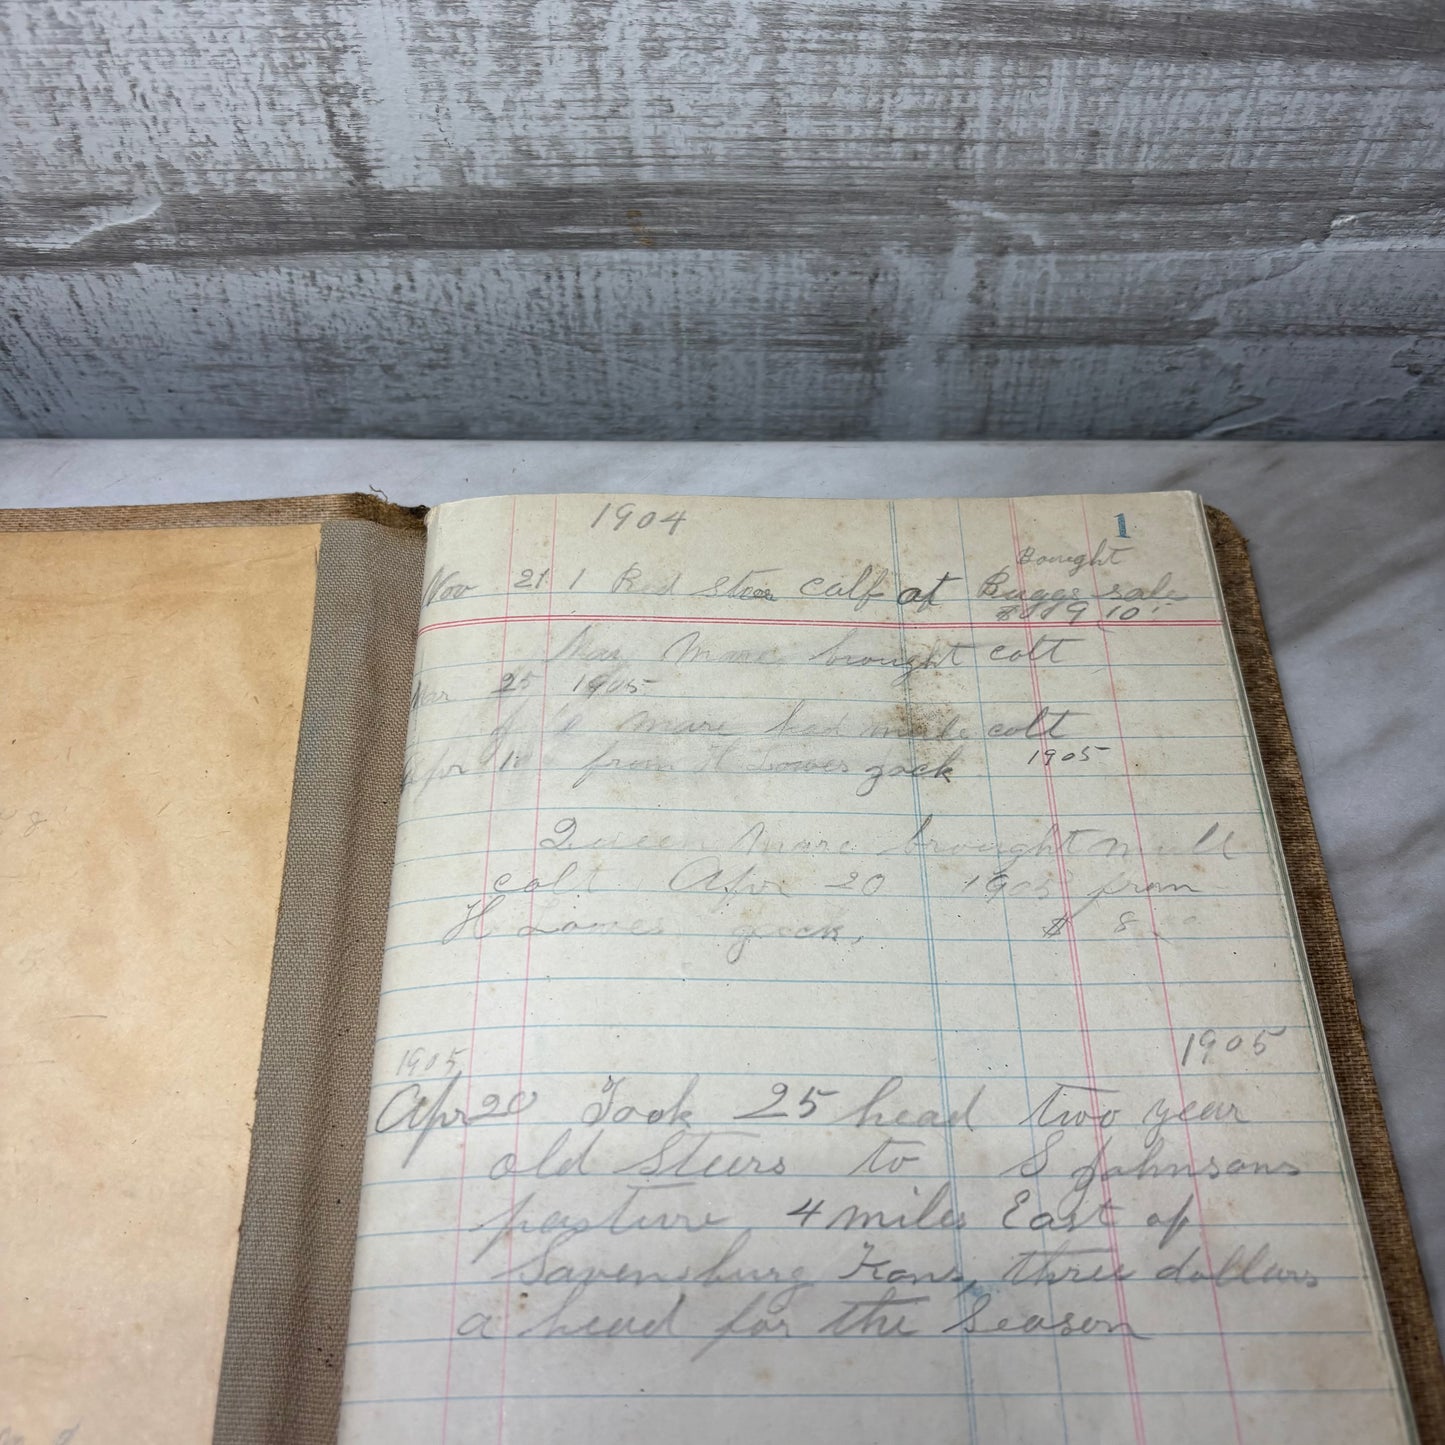 1904
1
Bought
Nov 21 1 Red Steer calf at Buggs sale
10
Mare brought colt
Mar 25 1905
mare had male colt
Apr 1 from H Lowes jack 1905
Queen Mare brought
colt Apr 20 1905 from
H Lowes jack, $ 8.00
1905
1905
Apr 20 Took 25 head two year
old Steers to S Johnsons
pasture, 4 miles East of
Savensburg Kans, three dollars
a head for the Season